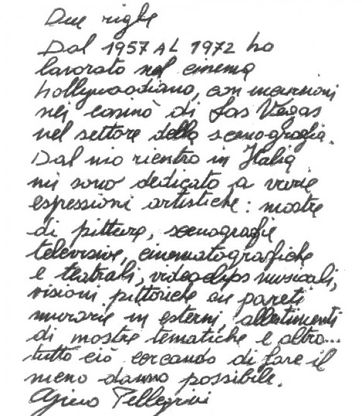 Due righe
Dal 1957 AL 1972 ho
lavorato nel cinema
hollywoodiano, con incursioni
nei casinò di Las Vegas
nel settore della scenografia.
Dal mio rientro in Italia
mi sono dedicato a varie
espressioni artistiche: mostre
di pitture, scenografie
televisive, cinematografiche
e teatrali, videoclips musicali,
visioni pittoriche su pareti
murarie in esterni, allestimenti
di mostre tematiche e altro...
tutto ciò cercando di fare il
meno danno possibile.
Pellegrini